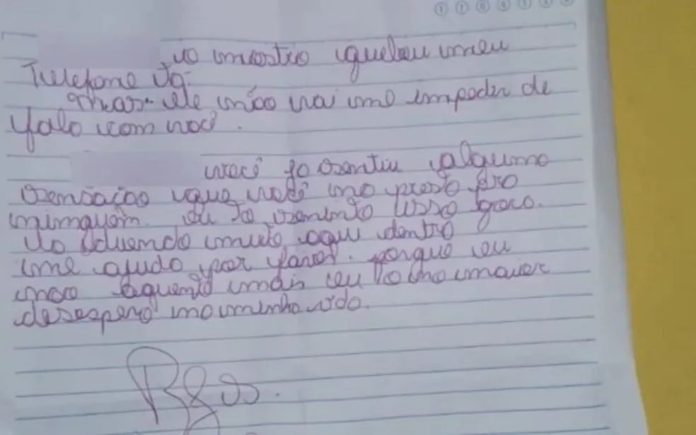 o mostro quebou meu
Telefone Já.
mas ele não vai me empedir de
falo com você.
você ja sentiu alguma
sensação que você não presta pro
ninguém. eu to sentindo isso gora.
to duendo muito aqui dentro
me ajuda por favor. porque eu
não aguento mais eu to no maior
desespero na minha vida.
Bjos.